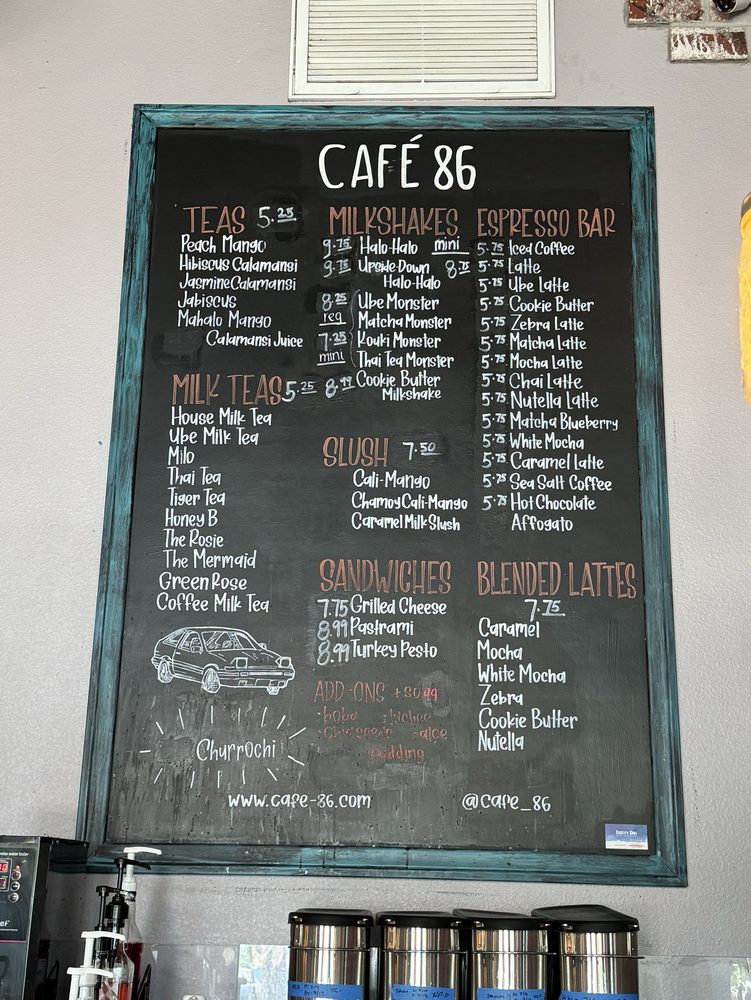 CAFÉ 86
TEAS 5.25
Peach Mango
Hibiscus Calamansi
Jasmine Calamansi
Jabiscus
Mahalo Mango
Calamansi Juice
MILK TEAS 5.25
House Milk Tea
Ube Milk Tea
Milo
Thai Tea
Tiger Tea
Honey B
The Rosie
The Mermaid
Green Rose
Coffee Milk Tea
Churrochi
MILKSHAKES
9.75 Halo-Halo mini
9.75 Upside-Down 8.75
Halo-Halo
8.25 Ube Monster
reg Matcha Monster
7.25 Kouki Monster
mini Thai Tea Monster
8.99 Cookie Butter
Milkshake
SLUSH 7.50
Cali-Mango
Chamoy Cali-Mango
Caramel Milk Slush
SANDWICHES
7.75 Grilled Cheese
8.99 Pastrami
8.99 Turkey Pesto
ADD-ONS
boba lychee
chia seeds aloe
pudding
ESPRESSO BAR
5.75 Iced Coffee
5.75 Latte
5.75 Ube Latte
5.75 Cookie Butter
5.75 Zebra Latte
5.75 Matcha Latte
5.75 Mocha Latte
5.75 Chai Latte
5.75 Nutella Latte
5.75 Matcha Blueberry
5.75 White Mocha
5.75 Caramel Latte
5.75 Sea Salt Coffee
5.75 Hot Chocolate
Affogato
BLENDED LATTES
7.75
Caramel
Mocha
White Mocha
Zebra
Cookie Butter
Nutella
www.cafe-86.com
@cafe_86